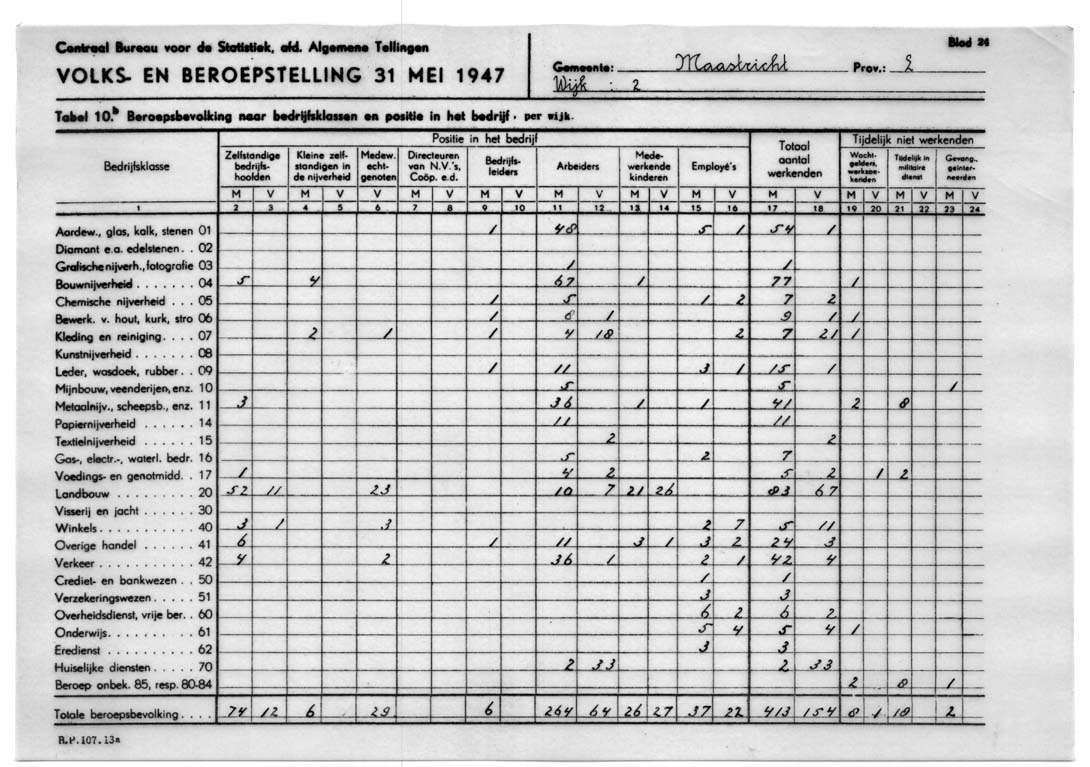 Centraal Bureau voor de Statistiek, afd. Algemene Tellingen
Blad 24
VOLKS- EN BEROEPSTELLING 31 MEI 1947
Gemeente: Maastricht Prov.:
Wijk : 2
Tabel 10.b Beroepsbevolking naar bedrijfsklassen en positie in het bedrijf, per wijk.
Bedrijfsklasse Positie in het bedrijf Totaal aantal werkenden Tijdelijk niet werkenden
Zelfstandige bedrijfshoofden Kleine zelfstandigen in de nijverheid Medew. echtgenoten Directeuren van N.V.'s, Coöp. e.d. Bedrijfsleiders Arbeiders Medewerkende kinderen Employé's Wachtgelders, werkzoekenden Tijdelijk in militaire dienst Gevang., geinterneerden
M V M V V M V M V M V M V M V M V M V M V M V
1 2 3 4 5 6 7 8 9 10 11 12 13 14 15 16 17 18 19 20 21 22 23 24
Aardew., glas, kalk, stenen 01 1 48 5 1 54 1
Diamant e.a. edelstenen . . 02
Grafische nijverh., fotografie 03 1 1
Bouwnijverheid . . . . . . . 04 5 4 67 1 77 1
Chemische nijverheid . . . 05 1 5 1 2 7 2
Bewerk. v. hout, kurk, stro 06 1 8 1 9 1 1
Kleding en reiniging. . . . 07 2 1 1 4 18 2 7 21 1
Kunstnijverheid . . . . . . . 08
Leder, wasdoek, rubber . . 09 1 11 3 1 15 1
Mijnbouw, veenderijen, enz. 10 5 5 1
Metaalnijv., scheepsb., enz. 11 3 36 1 1 41 2 8
Papiernijverheid . . . . . . 14 11 11
Textielnijverheid . . . . . . 15 2 2
Gas-, electr.-, waterl. bedr. 16 5 2 7
Voedings- en genotmidd. . 17 1 4 2 5 2 1 2
Landbouw . . . . . . . . . 20 52 11 23 10 7 21 26 83 67
Visserij en jacht . . . . . . 30
Winkels. . . . . . . . . . . 40 3 1 3 2 7 5 11
Overige handel . . . . . . 41 6 1 11 3 1 3 2 24 3
Verkeer . . . . . . . . . . . 42 4 2 36 1 2 1 42 4
Crediet- en bankwezen . . 50 1 1
Verzekeringswezen . . . . . 51 3 3
Overheidsdienst, vrije ber. . 60 6 2 6 2
Onderwijs. . . . . . . . . . 61 5 4 5 4 1
Eredienst . . . . . . . . . . 62 3 3
Huiselijke diensten . . . . . 70 2 33 2 33
Beroep onbek. 85, resp. 80-84 2 8 1
Totale beroepsbevolking . . . . 74 12 6 29 6 264 64 26 27 37 22 413 154 8 1 18 2
R.P.107.13a